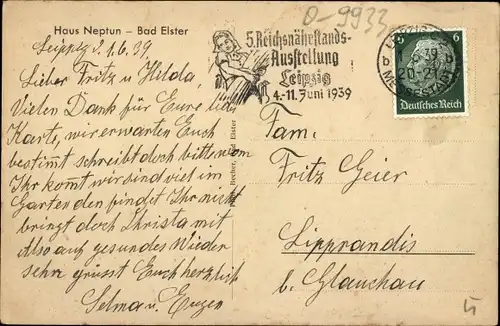 Haus Neptun – Bad Elster
Leipzig d. 1.6.39
Lieber Fritz u Hilda,
Vielen Dank für Eure liebe
Karte, wir erwarten Euch
bestimmt schreibt doch bitte wann
Ihr kommt wir sind viel im
Garten den findet Ihr nicht
bringt doch Christa mit
Also auf gesundes Wieder
sehn grüsst Euch herzlich
Selma u. Eugen
Becher, Bad Elster
O-9933
5. Reichsnährstands-
Ausstellung
Leipzig
4.-11. Juni 1939
LEIPZIG
b b
20-21
MESSESTADT
5 6
Deutsches Reich
Fam.
Fritz Geier
Lipprandis
b. Glauchau